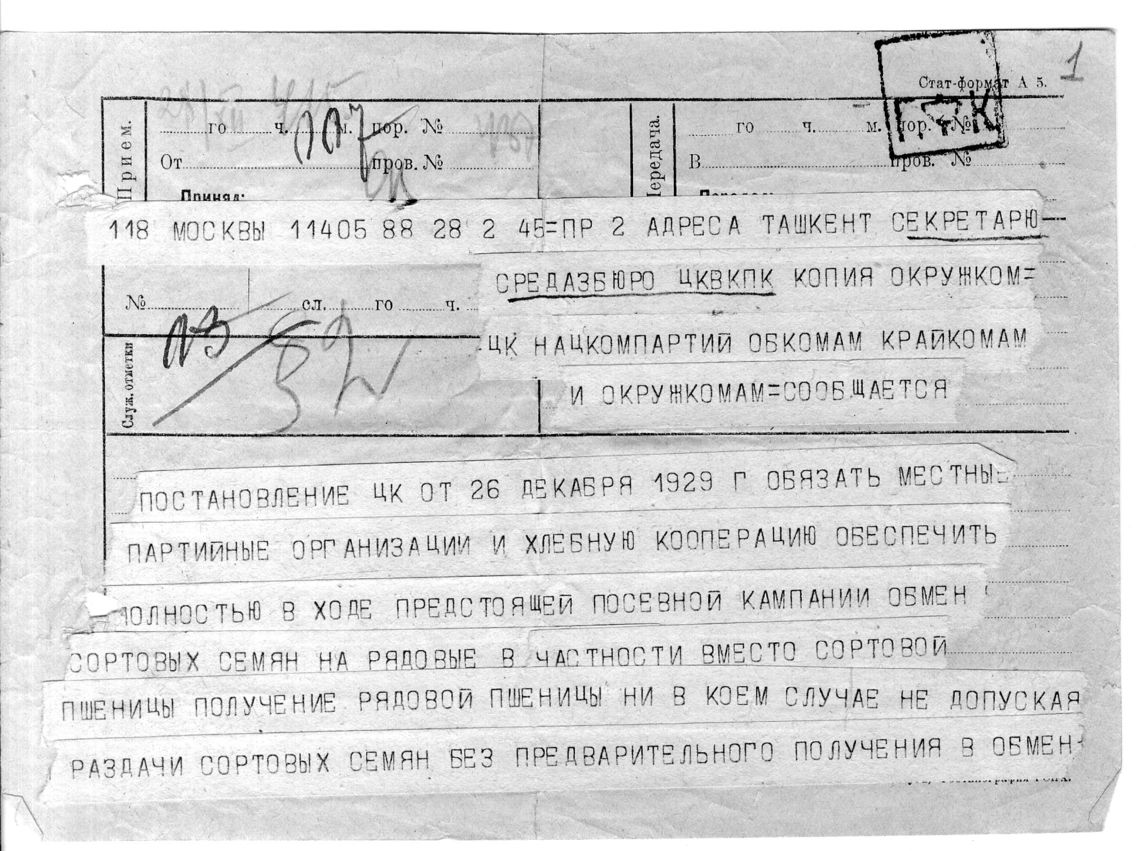 1
Стат-формат А 5.
Прием.
го ч. м. пор. №
От пров. №
Принял:
Передача.
го ч. м. пор. №
В пров. №
118 МОСКВЫ 11405 88 28 2 45=ПР 2 АДРЕСА ТАШКЕНТ СЕКРЕТАРЮ
СРЕДАЗБЮРО ЦКВКПК КОПИЯ ОКРУЖКОМ=
№ сл. го ч.
ЦК НАЦКОМПАРТИЙ ОБКОМАМ КРАЙКОМАМ
Служ. отметки
И ОКРУЖКОМАМ=СООБЩАЕТСЯ
ПОСТАНОВЛЕНИЕ ЦК ОТ 26 ДЕКАБРЯ 1929 Г ОБЯЗАТЬ МЕСТНЫЕ
ПАРТИЙНЫЕ ОРГАНИЗАЦИИ И ХЛЕБНУЮ КООПЕРАЦИЮ ОБЕСПЕЧИТЬ
ПОЛНОСТЬЮ В ХОДЕ ПРЕДСТОЯЩЕЙ ПОСЕВНОЙ КАМПАНИИ ОБМЕН
СОРТОВЫХ СЕМЯН НА РЯДОВЫЕ В ЧАСТНОСТИ ВМЕСТО СОРТОВОЙ
ПШЕНИЦЫ ПОЛУЧЕНИЕ РЯДОВОЙ ПШЕНИЦЫ НИ В КОЕМ СЛУЧАЕ НЕ ДОПУСКАЯ
РАЗДАЧИ СОРТОВЫХ СЕМЯН БЕЗ ПРЕДВАРИТЕЛЬНОГО ПОЛУЧЕНИЯ В ОБМЕН